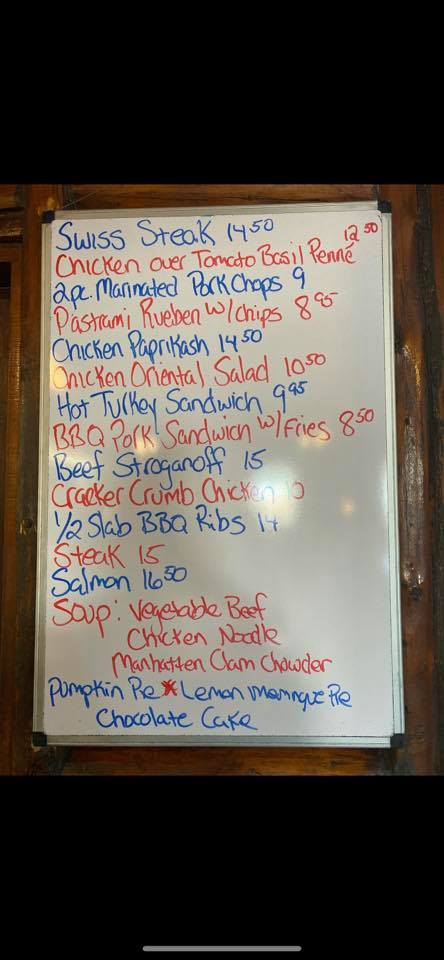 Swiss Steak 14 50
Chicken over Tomato Basil Penné 12 50
2pc. Marinated Pork Chops 9
Pastrami Rueben w/chips 8 95
Chicken Paprikash 14 50
Chicken Oriental Salad 10 50
Hot Turkey Sandwich 9 95
BBQ Pork Sandwich w/Fries 8 50
Beef Stroganoff 15
Cracker Crumb Chicken 10
1/2 Slab BBQ Ribs 14
Steak 15
Salmon 16 50
Soup: Vegetable Beef
Chicken Noodle
Manhatten Clam Chowder
Pumpkin Pie * Lemon Meringue Pie
Chocolate Cake